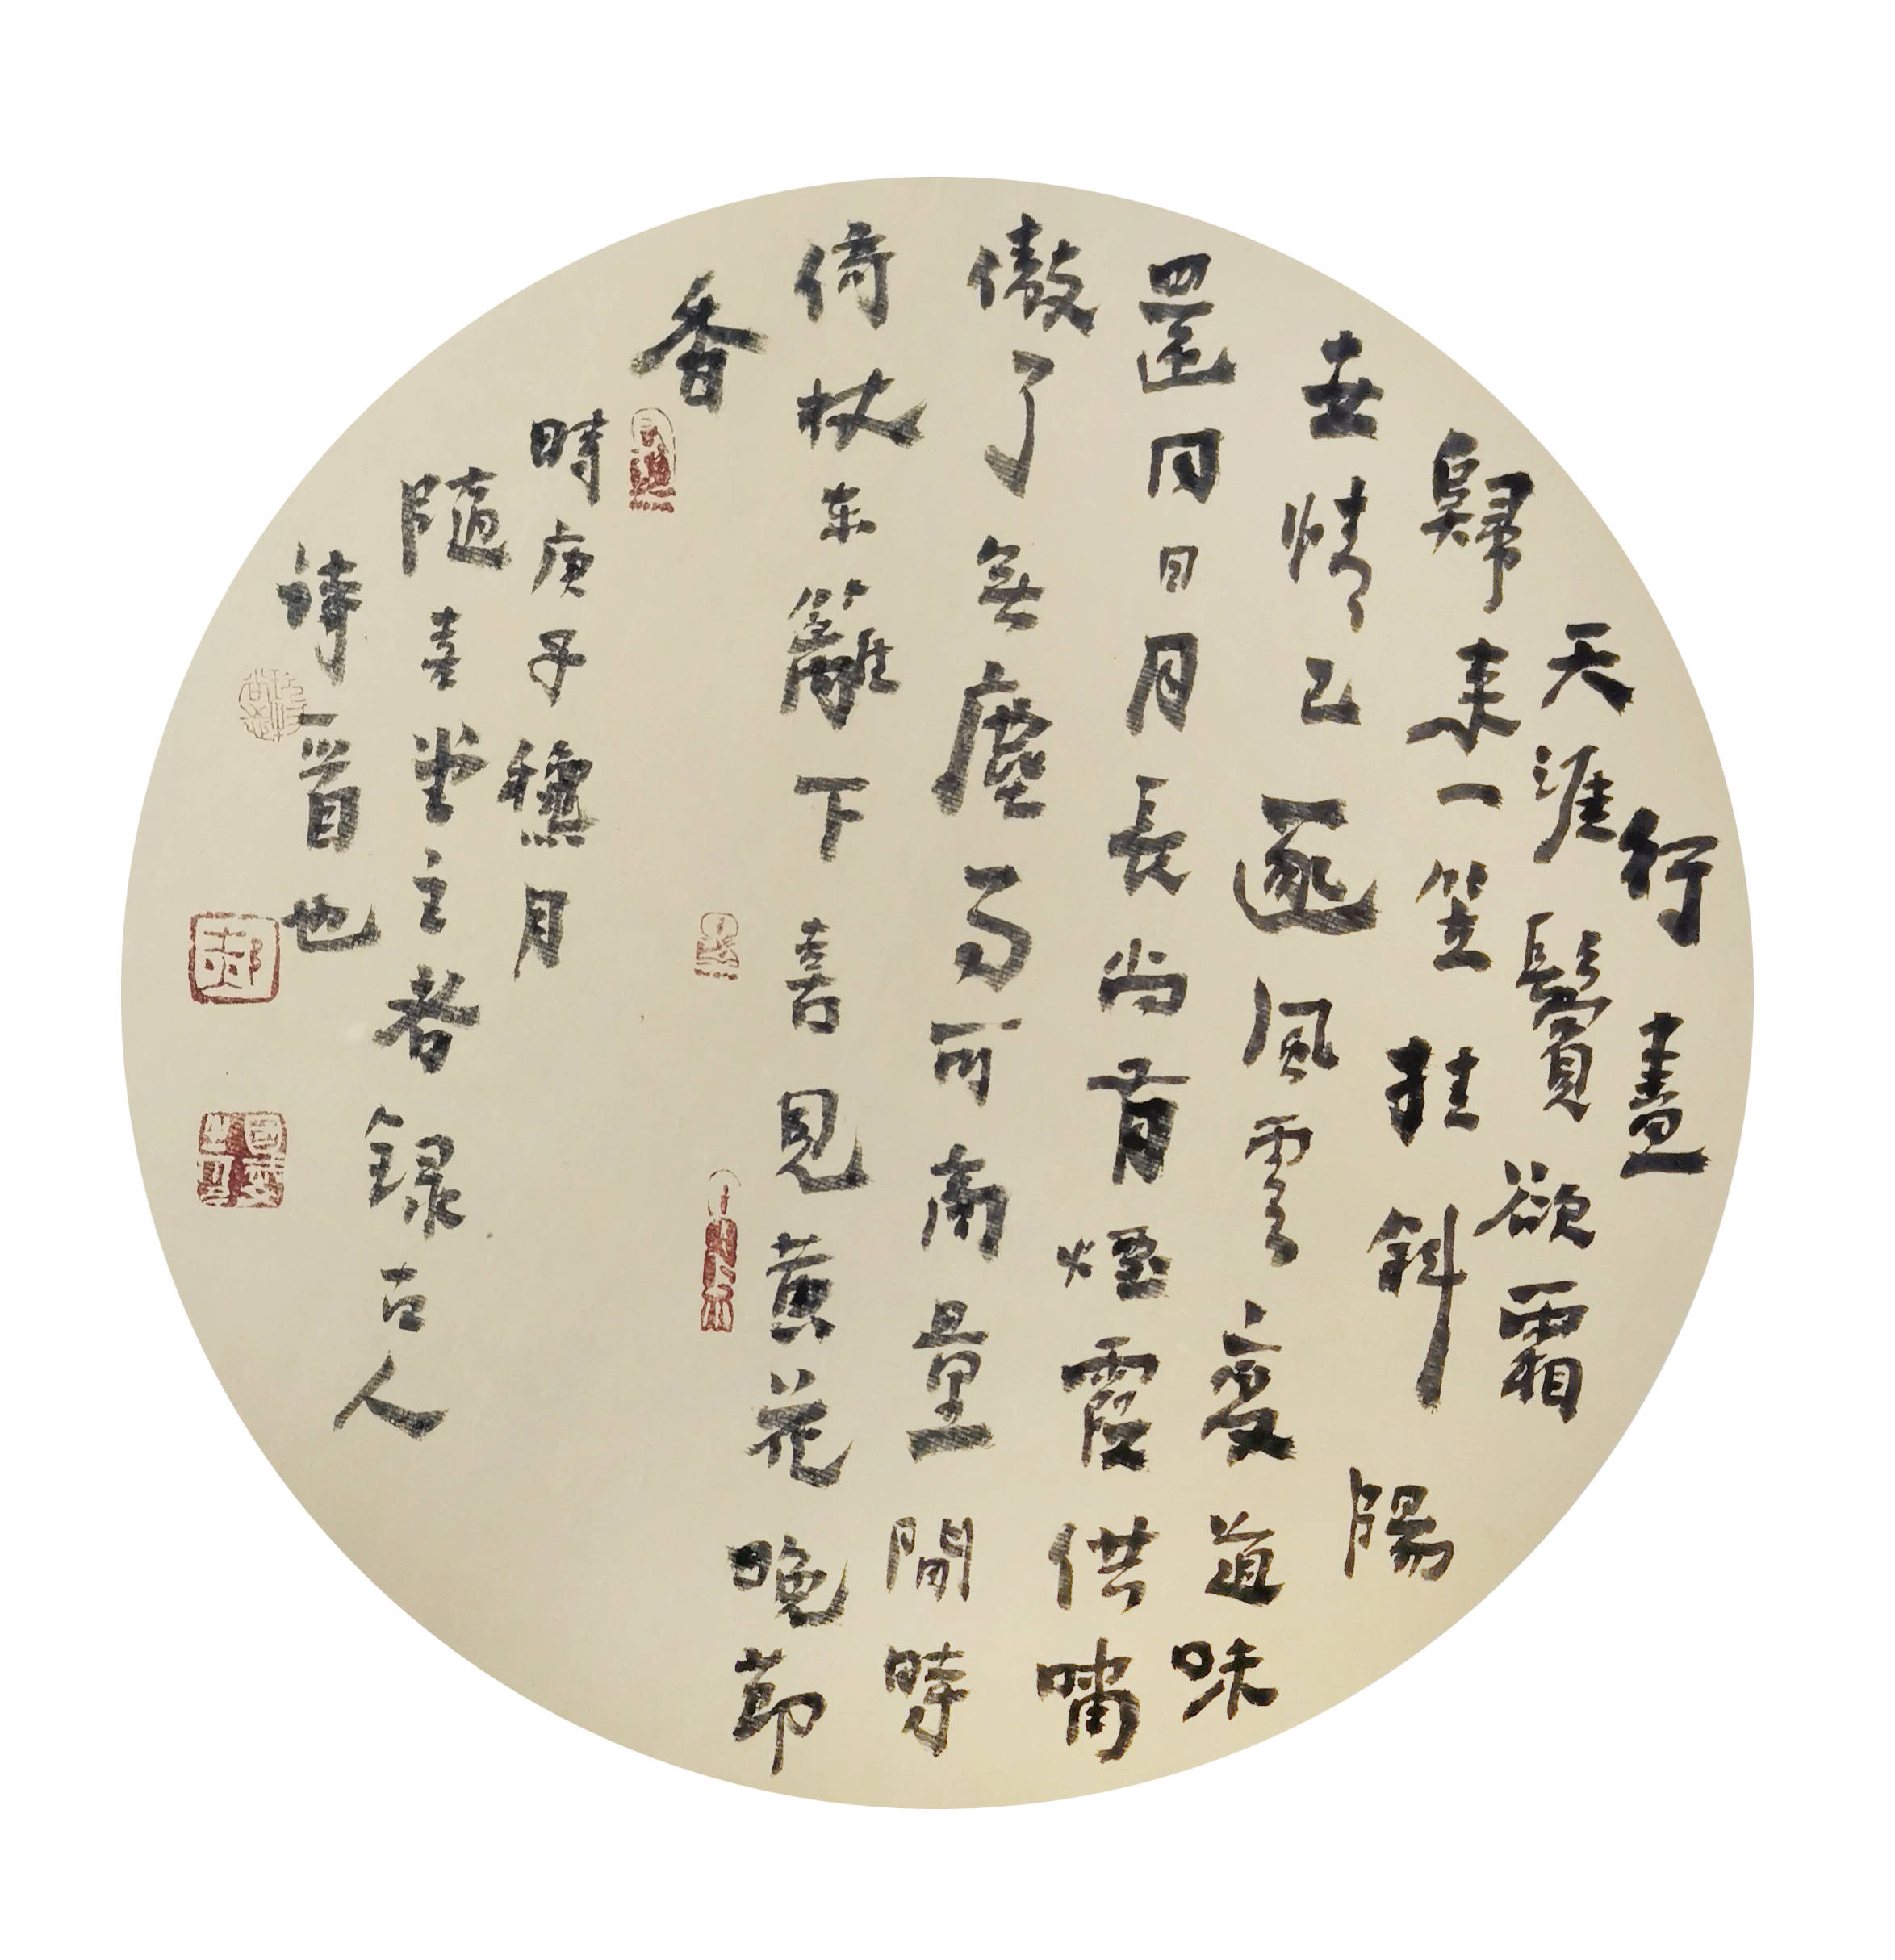 行盡
天涯鬢欲霜
歸来一笠挂斜陽
世情已逐風雲變道味
還同日月長尚有煙霞供嘯
傲了無塵事可商量閒時
倚杖东籬下喜見黄花晚節
香
時庚子穐月
隨喜堂主者録古人
詩一首也